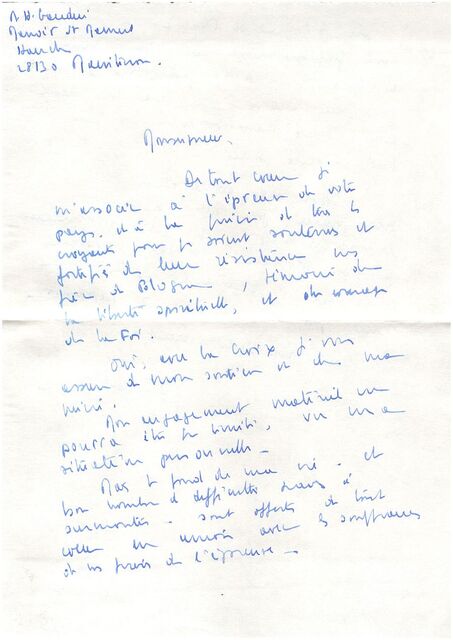 Manoir St
28130 Maintenon.
Monseigneur,
De tout cœur je
m'associe à l'épreuve de votre
pays, et à la prière de tous les
croyants pour que soient soutenus et
fortifiés de leur résistance nos
frères de Pologne, témoins de
la liberté spirituelle, et du courage
de la Foi.
Oui, avec la Croix je vous
assure de mon soutien et de ma
prière.
Mon engagement matériel ne
pourra être que limité, vu ma
situation personnelle -
Mais le fond de ma vie - et
bon nombre de difficultés à
surmonter - sont offerts de tout
cœur en union avec les souffrances
de nos frères de l'épreuve -